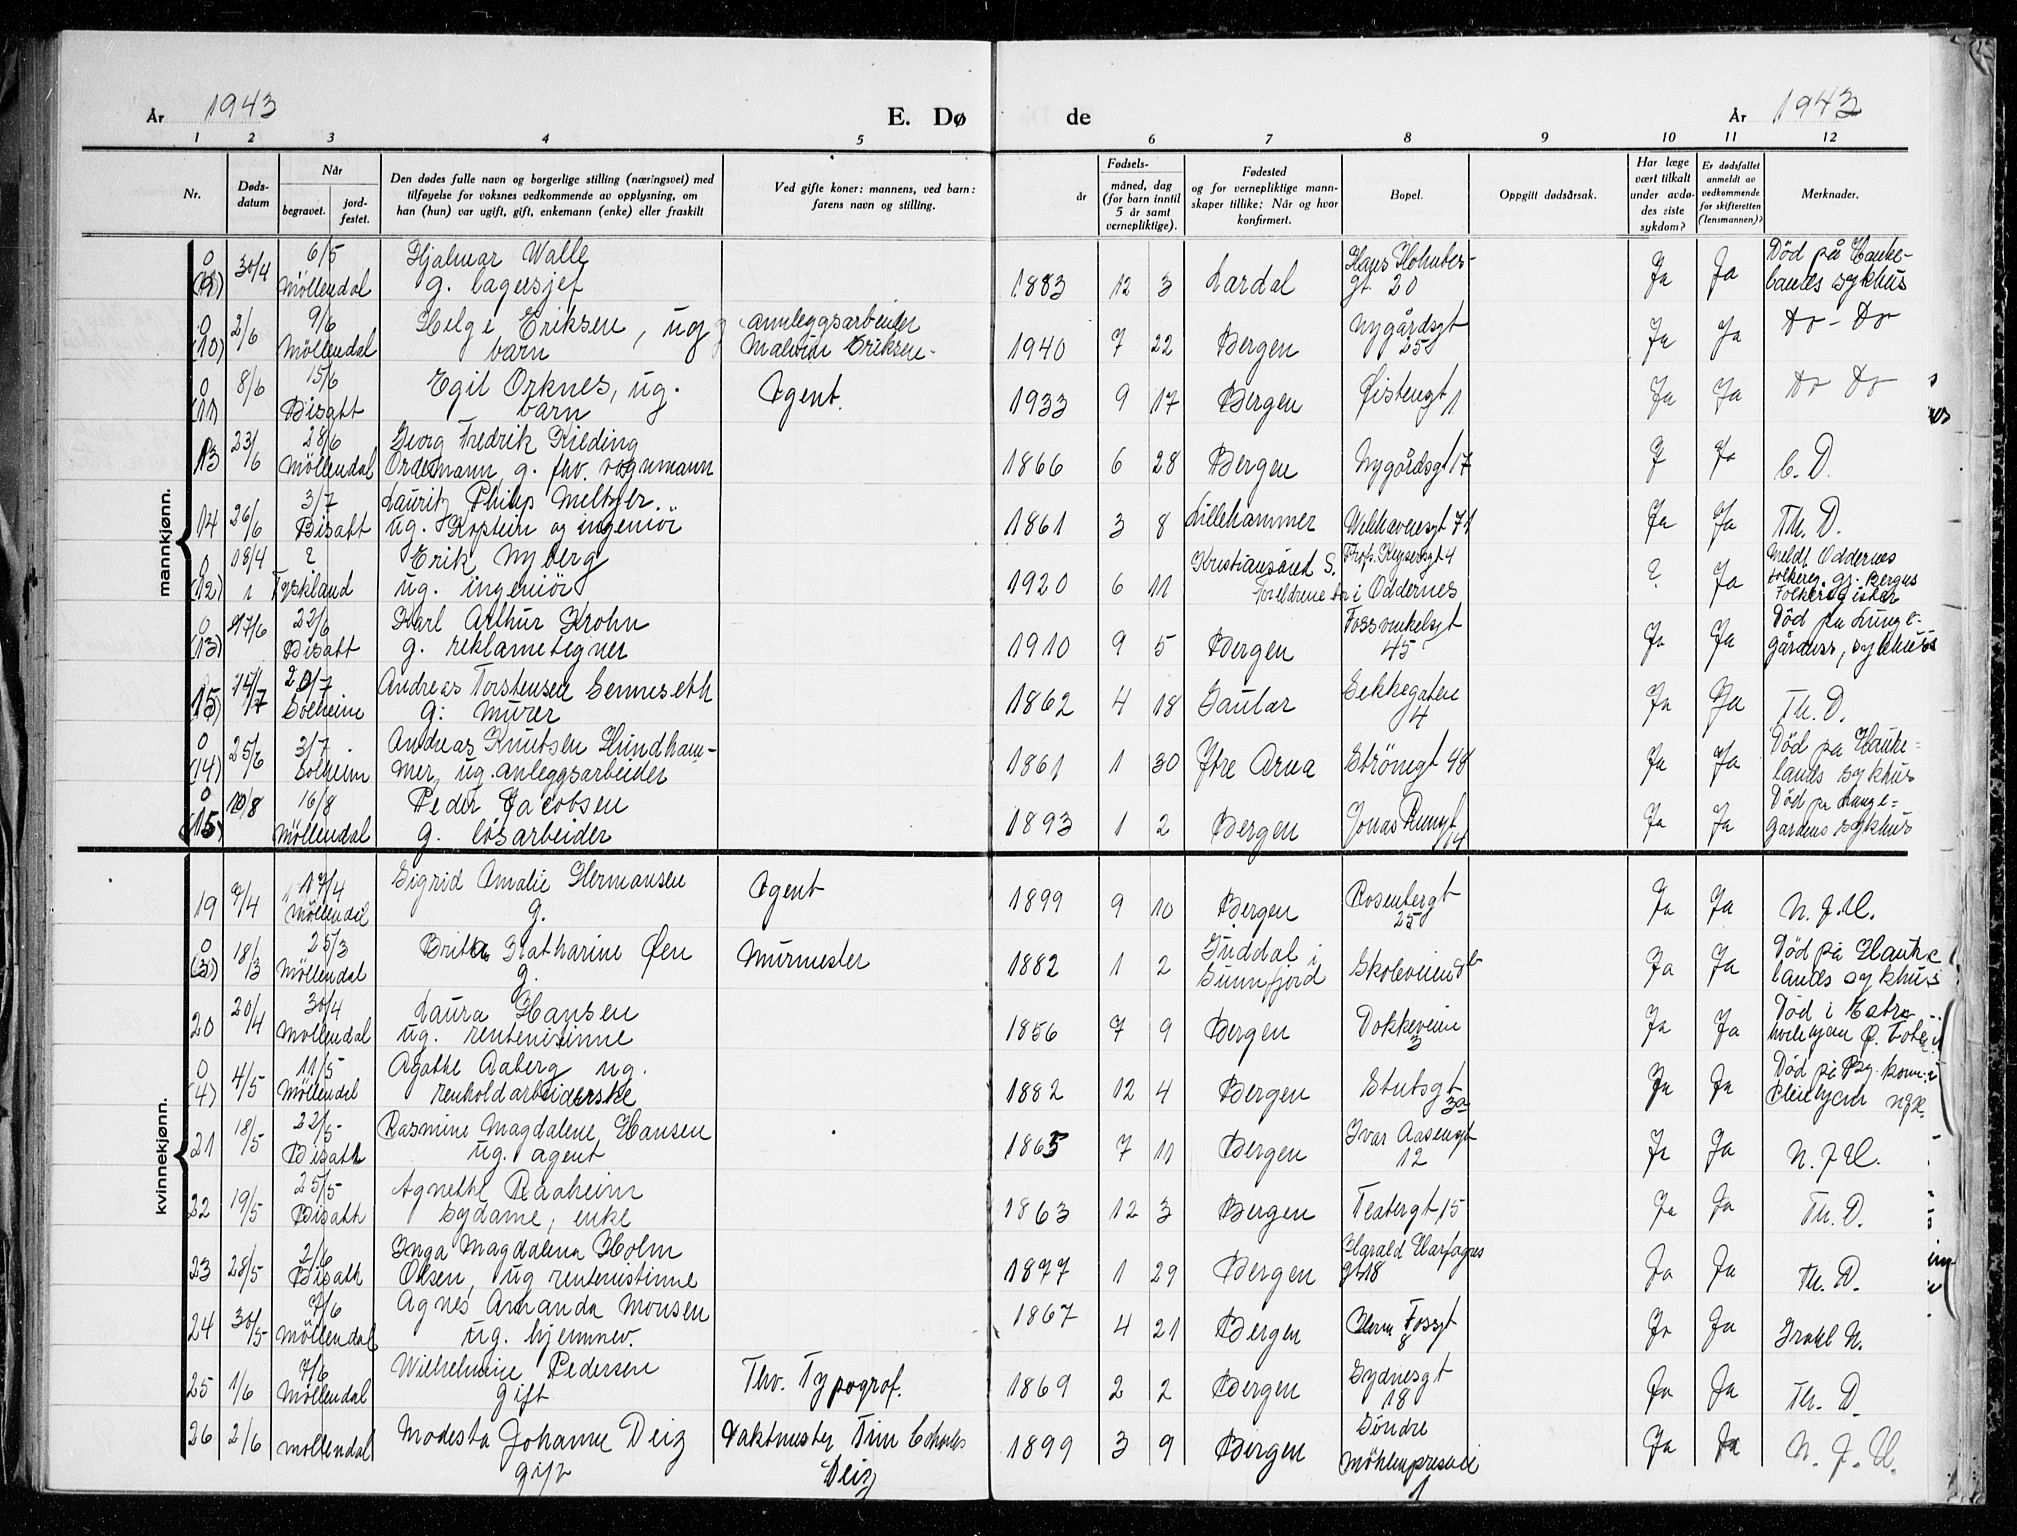 År 1943 E. Dø de År 1943
1 2 3 4 5 6 7 8 9 10 11 12
Nr.
Døds-
datum
Når
begravet.
jord-
festet.
Den dødes fulle navn og borgerlige stilling (næringsvei) med
tilføyelse for voksnes vedkommende av opplysning, om
han (hun) var ugift, gift, enkemann (enke) eller fraskilt
Ved gifte koner: mannens, ved barn:
farens navn og stilling.
Fødsels-
år
måned, dag
(for barn inntil
5 år samt
vernepliktige).
Fødested
og for vernepliktige mann-
skaper tillike: Når og hvor
konfirmert.
Bopel.
Oppgitt dødsårsak.
Har læge
vært tilkalt
under avdø-
des siste
sykdom?
Er dødsfallet
anmeldt av
vedkommende
for skifteretten
(lensmannen)?
Merknader.
mankjønn.
0 6/5 Hjalmar Walle Hans Død på Hauke-
(9) 30/4 Möllendal g. lagersjef 1883 12 3 Lardal gt 20 Ja Ja lands sykhus
0 2/6 9/6 Helge Eriksen, ug anleggsarbeider Nygårdsgt Do - Do
(10) Möllendal barn Eriksen 1940 7 22 Bergen 25 Ja Ja
0 8/6 15/6 Egil Orknes, ug. Agent. Øistengt 1 Do Do
(11) Bisatt barn 1933 9 17 Bergen Ja Ja
13 23/6 28/6 Georg Fredrik Kilding
Möllendal g. fhv. vognmann 1866 6 28 Bergen Nygårdsgt 17 J Ja C. D.
14 26/6 3/7 Lauritz Philip Meltzer
Bisatt ug. Kaptein og ingeniör 1861 3 8 Lillehammer Welhavensgt 74 Ja Ja Th. D.
0 19/4 ? Erik Nyberg Kristiansand S. Prof. Keysersgt 4 Meldt Oddernes
(12) Tyskland ug. ingeniör 1920 6 11 Foreldrene bor i Oddernes ? Ja folkereg. gj. Bergens
Folkeregister
0 17/6 22/6 Karl Arthur Krohn Fosswinkelsgt Død på Lunge-
(13) Bisatt g. reklametegner 1910 9 5 Bergen 45 Ja Ja gårdens sykhus
15 14/7 20/7 Andreas Torstensen Senneseth Sekkegaten
Solheim g. murer 1862 4 18 Gaular 4 Ja Ja Th. D.
0 25/6 3/7 Andreas Knutsen Hundham- Død på Hauke-
(14) Solheim mer, ug. anleggsarbeider 1861 1 30 Ytre Arna Strömgt 48 Ja Ja lands sykhus
0 10/8 16/8 Peder Jacobsen Død på Lunge-
(15) Möllendal g. lösarbeider 1893 1 2 Bergen Jonas Reinsgt 14 Ja Ja gårdens sykhus
kvinnekjønn.
19 9/4 17/4 Sigrid Amalie Hermansen Agent 1899 9 10 Bergen Rosenbergt Ja Ja N. J. U.
Möllendal g. 25
0 18/3 25/3 Britha Katharine Øen Murmester 1882 1 2 Guddal i Død på Hauke
(3) Möllendal g. Sunnfjord Skoleveien Ja Ja lands sykhus
20 20/4 30/4 Laura Hansen Dokkeveien Død i
Mollendal ug. rentenistinne 1856 7 9 Bergen 3 Ja Ja
0 4/5 11/5 Agathe Aaberg ug. Død på
(4) Möllendal renholdarbeiderske 1882 12 4 Bergen Stutsgt 3a Ja Ja
21 18/5 22/5 Rasmine Magdalene Hansen Ivar Aasengt
Bisatt ug. agent 1865 7 11 Bergen 12 Ja Ja N. J. U.
22 19/5 25/5 Agnethe Raaheim
Bisatt sydame, enke 1863 12 3 Bergen Teatergt 15 Ja Ja Th. D.
23 28/5 2/6 Inga Magdalena Holm Harald Harfagres
Bisatt Olsen, ug rentenistinne 1877 1 29 Bergen gt 18 Ja Ja Th. D.
24 30/5 7/6 Agnes Amanda Monsen 1867
Möllendal ug. hjemmev. 4 21 Bergen Herm Fossgt 8 Ja Ja Irgel N.
25 1/6 7/6 Wilhelmine Pedersen Fhv. Typograf. Sydnesgt
Möllendal gift 1869 2 2 Bergen 18 Ja Ja Th. D.
26 2/6 Modesta Johanne Deiz Vaktmester Finn Charles Söndre
mollendal gift Deiz 1899 3 9 Bergen Möhlenprisvei 1 Ja Ja N. J. U.